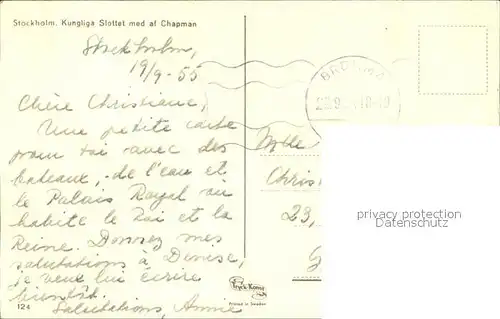 Stockholm. Kungliga Slottet med af Chapman
Stockholm,
19/9-55
Chère Christiane,
Une petite carte
pour toi avec des
bateaux, de l'eau et
le Palais Royal où
habite le Roi et la
Reine. Donnez mes
salutations à Denise,
je veux lui écrire
bientôt.
Salutations, Annie
124
BROMMA
Mlle
Chris
23,
privacy protection
Datenschutz
Printed in Sweden